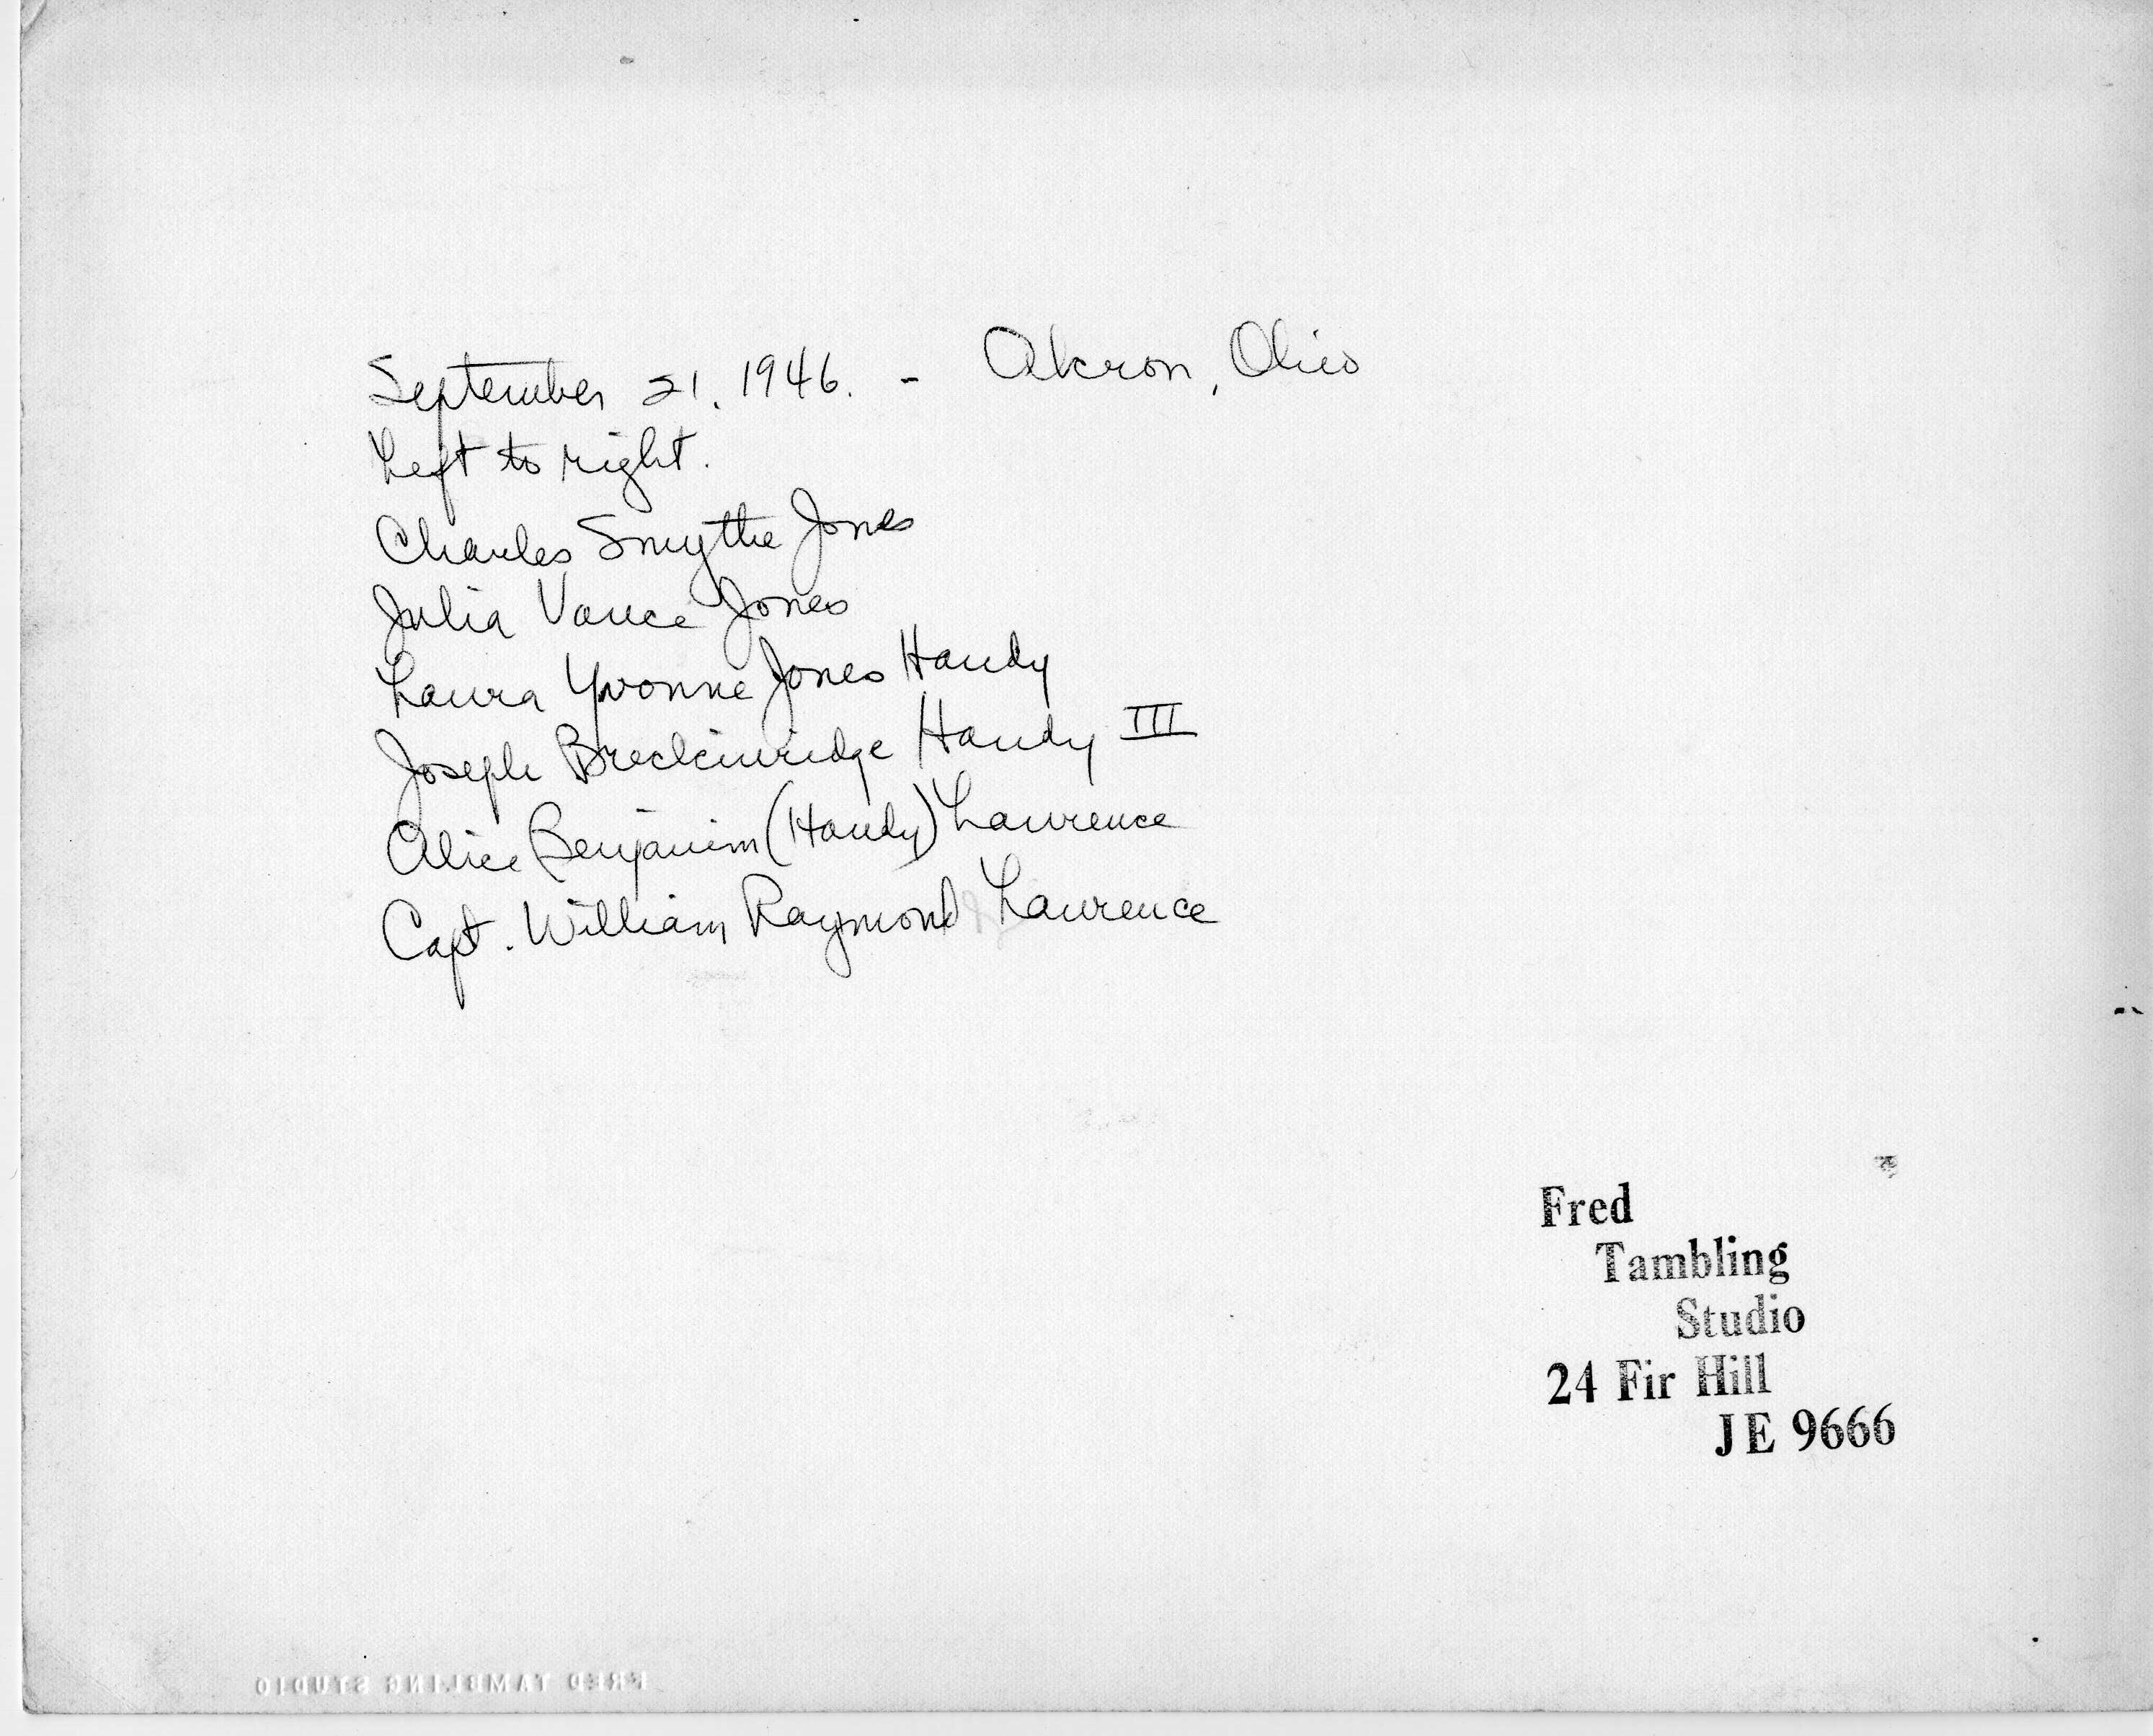 September 21, 1946. - Akron, Ohio
Left to right.
Charles Smythe Jones
Julia Vance Jones
Laura Yvonne Jones Handy
Joseph Breckinridge Handy III
Alice Benjamin (Handy) Lawrence
Capt. William Raymond Lawrence
Fred
Tambling
Studio
24 Fir Hill
JE 9666
FRED TAMBLING STUDIO